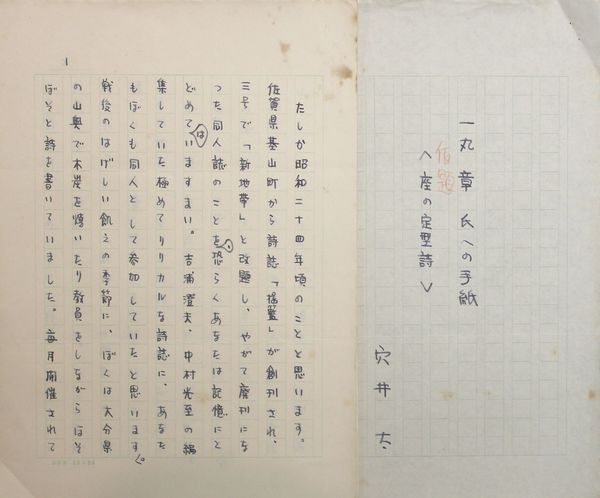 一丸章氏への手紙
仮題
＜座の定型詩＞
穴井太
1
たしか昭和二十四年頃のことと思います。
佐賀県基山町から詩誌「揺籃」が創刊され、
三号で「新地帯」と改題し、やがて廃刊にな
った同人誌のことを、恐らくあなたは記憶にと
どめてはいますまい。吉浦澄夫、中村光至の編
集していた極めてリリカルな詩誌に、あなた
もぼくも同人として参加していたと思います。
戦後のはげしい飢えの季節に、ぼくは大分県
の山奥で木炭を焼いたり教員をしながらほそ
ぼそと詩を書いていました。毎月開催されて